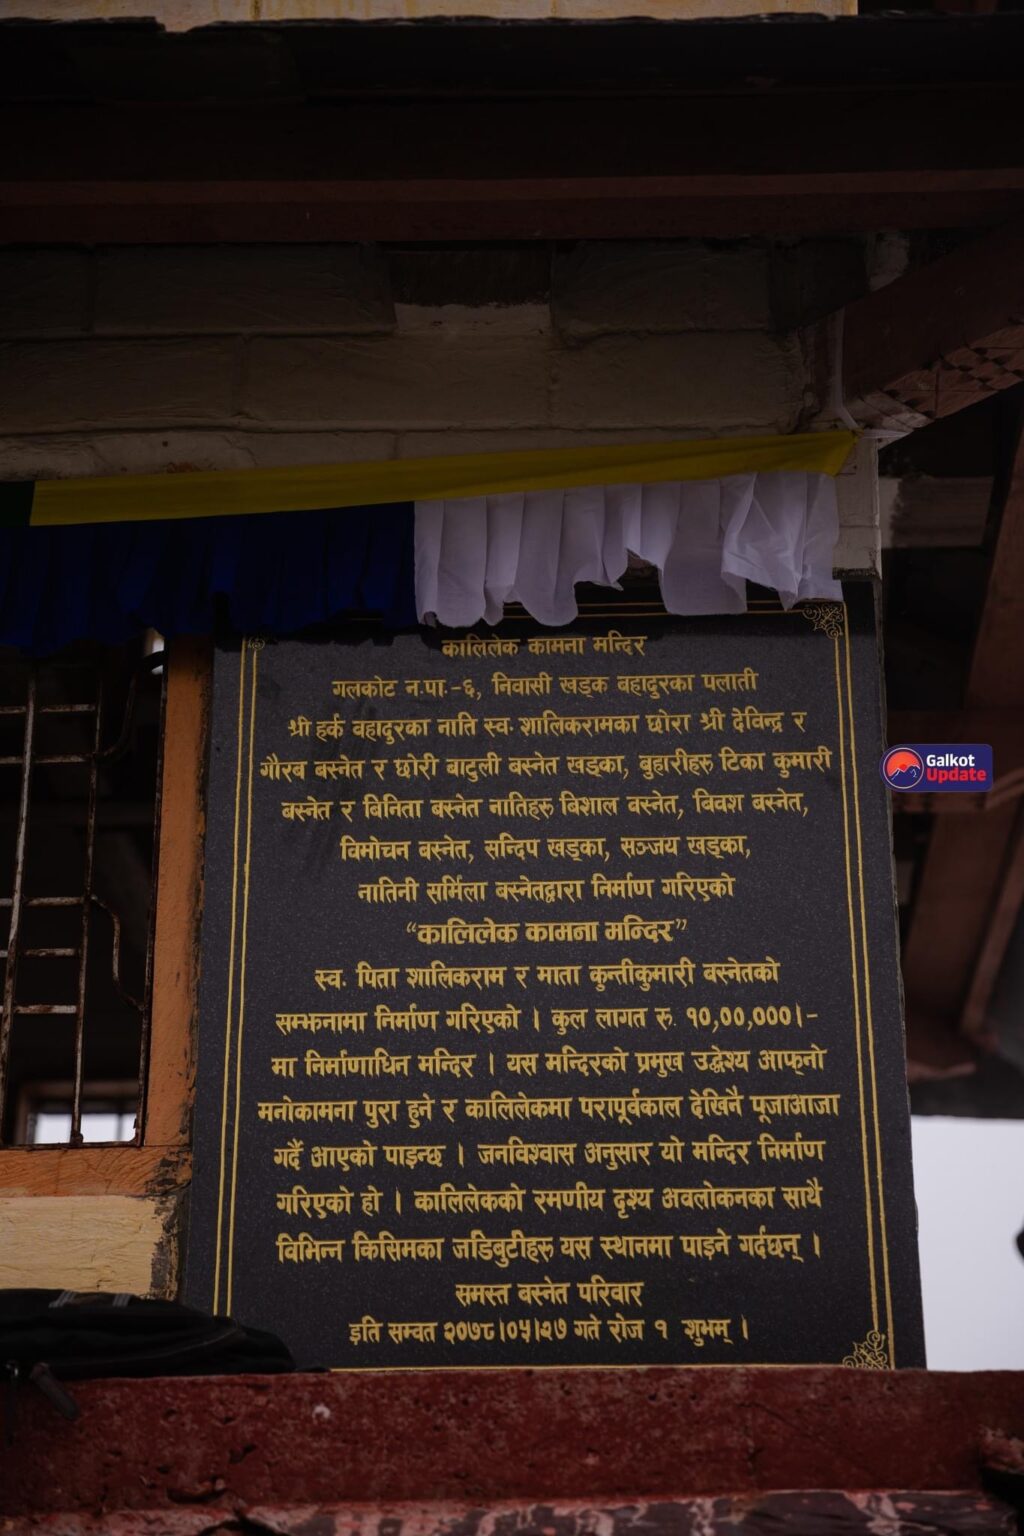 कालिलेक कामना मन्दिर
गलकोट न.पा.-६, निवासी खड्क बहादुरका पलाती
श्री हर्क बहादुरका नाति स्व. शालिकरामका छोरा श्री देविन्द्र र
गौरब बस्नेत र छोरी बाटुली बस्नेत खड्का, बुहारीहरू टिका कुमारी
बस्नेत र बिनिता बस्नेत नातिहरू बिशाल बस्नेत, बिवश बस्नेत,
विमोचन बस्नेत, सन्दिप खड्का, सञ्जय खड्का,
नातिनी सर्मिला बस्नेतद्वारा निर्माण गरिएको
“कालिलेक कामना मन्दिर”
स्व. पिता शालिकराम र माता कुन्तीकुमारी बस्नेतको
सम्झनामा निर्माण गरिएको । कुल लागत रु. १०,००,०००।-
मा निर्माणाधिन मन्दिर । यस मन्दिरको प्रमुख उद्धेश्य आफ्‌नो
मनोकामना पुरा हुने र कालिलेकमा परापूर्वकाल देखिनै पूजाआजा
गर्दै आएको पाइन्छ । जनविश्वास अनुसार यो मन्दिर निर्माण
गरिएको हो । कालिलेकको रमणीय दृश्य अवलोकनका साथै
विभिन्न किसिमका जडिबुटीहरू यस स्थानमा पाइने गर्दछन् ।
समस्त बस्नेत परिवार
इति सम्वत २०७८।०५।२७ गते रोज १ शुभम् ।
Galkot
Update